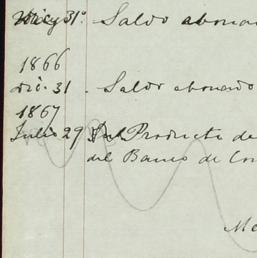 31º Saldo abonado
1866
Dic. 31. Saldo abonado
1867
Julio 29 Producto de
del Banco de